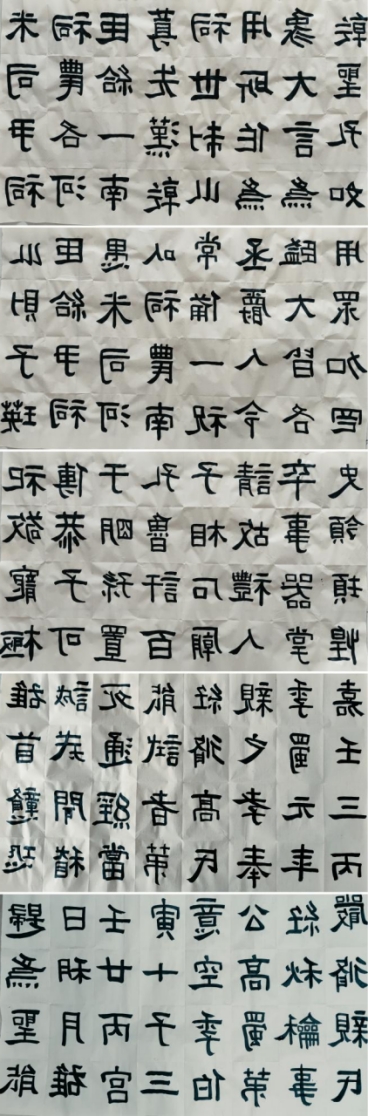 米祠臣尊祠用象乾
司農給先世所大聖
尹各一漢制作言孔
祠河南乾山爲爲如
山臣愚以常丞臨用
財給米祠備爵大眾
子尹司農一人皆加
瑛祠河南祝令各四
祀傳于孔子請卒史
敬恭明魯相故事領
寵子孫計石禮器項
極可置百廟人掌煌
雄誠死能經親季嘉
首戒通試脩之蜀壬
戇開經者高孝元三
恐稽當第氏奉年丙
歸日壬寅意公經嚴
爲朔廿十空高秋脩
聖月丙子季蜀龢親
能雄宮三伯第事民